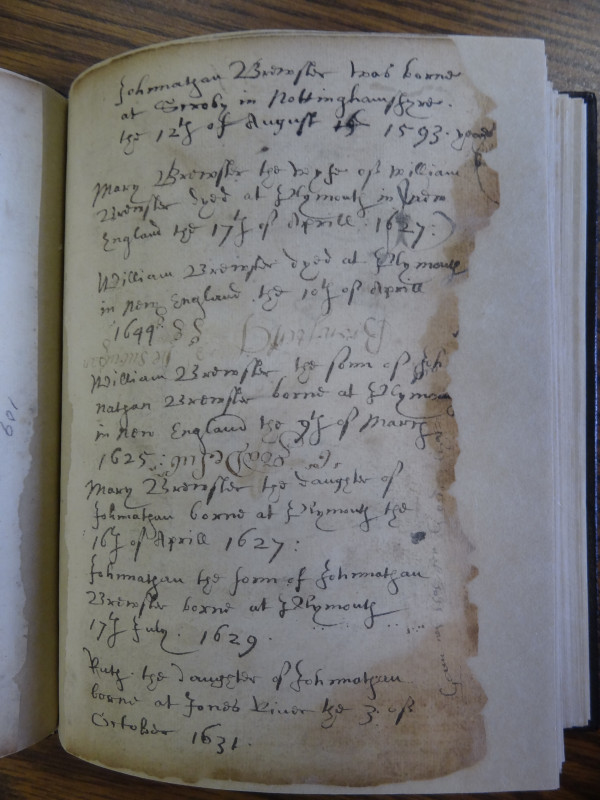 Johnnathan Brewster was borne
at Scroby in Nottinghamshyre.
the 12th of August the 1593.
Mary Brewster the wyfe of William
Brewster dyed at Plymouth in New
England the 17th of Aprill: 1627:
William Brewster dyed at Plymouth
in New England the 10th of Aprill
1644
William Brewster the sonn of Joh
nathan Brewster borne at Plymouth
in New England the 9th of March
1625:
Mary Brewster the daughter of
Johnnathan borne at Plymouth the
16th of Aprill 1627:
Johnnathan the sonn of Johnnathan
Brewster borne at Plymouth
17th July. 1629.
Ruth the daughter of Johnnathan
borne at Jones River the 3. of
October 1631.
109